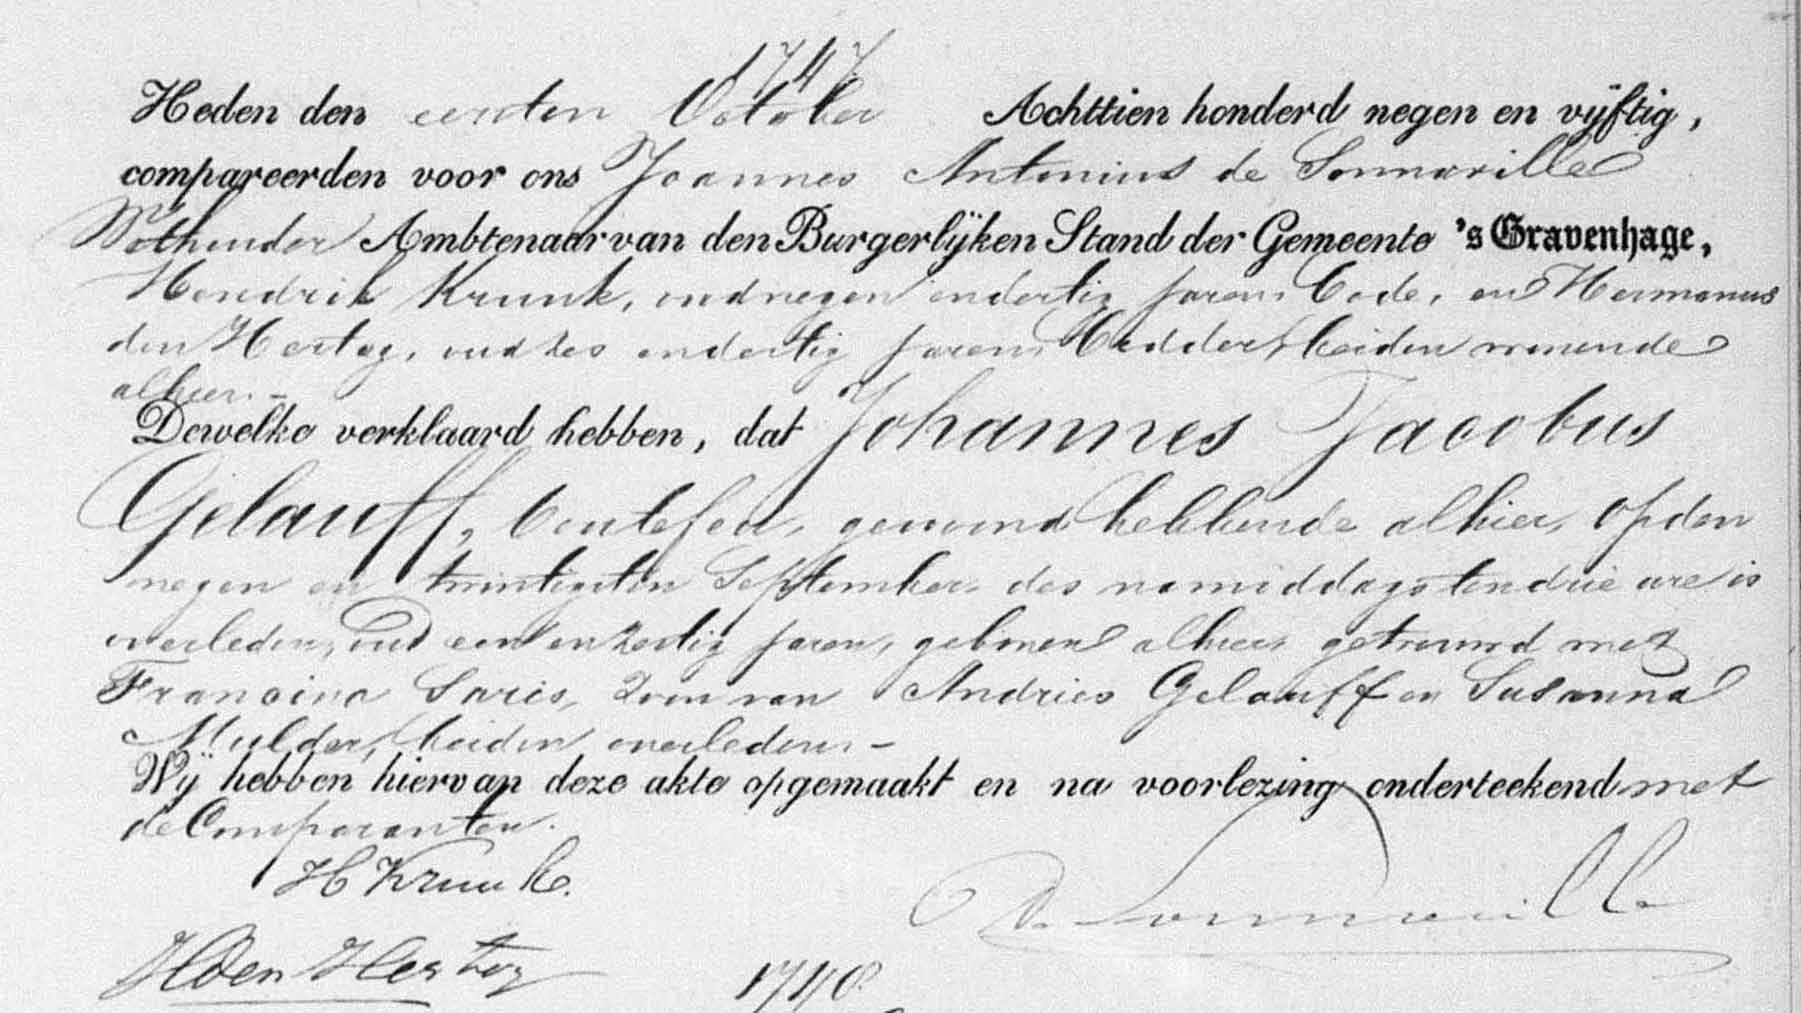 1747.
Heden den eersten October Achttien honderd negen en vijftig,
compareerden voor ons Joannes Antonius de Sonnaville
Wethouder Ambtenaar van den Burgerlijken Stand der Gemeente 's Gravenhage,
Hendrik Krunk, oud negen en dertig jaren, Bode, en Hermanus
den Hertog, oud zes en dertig jaren, beiden wonende
alhier. –
Dewelke verklaard hebben, dat Johannes Jacobus
Gelauff, gewoond hebbende alhier, op den
negen en twintigsten September des namiddags ten drie ure is
overleden, oud een en jaren, geboren alhier, getrouwd met
Francina Saris, Zoon van Andries Gelauff en Susanna
Mulder, beiden overleden. –
Wij hebben hiervan deze akte opgemaakt en na voorlezing onderteekend met
de Comparanten.
H Krunk.
De Sonnaville
HDen Hertog
1748.